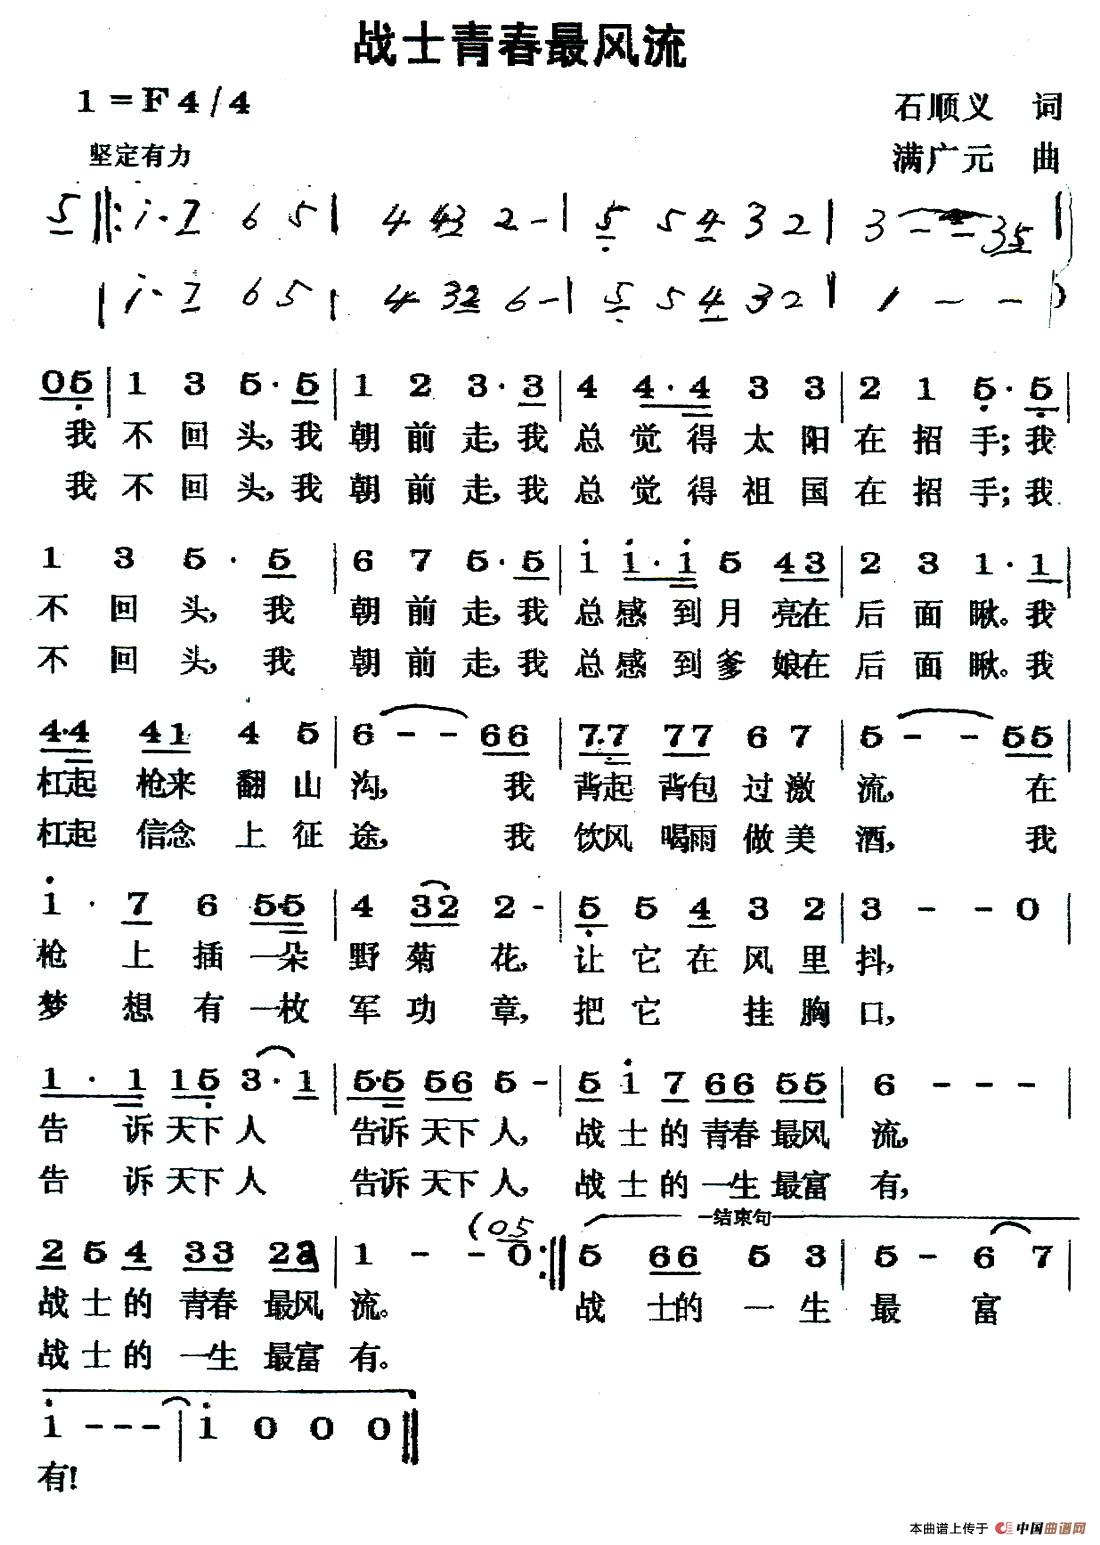 战士青春最风流
1=F 4/4
石顺义 词
坚定有力
满广元 曲
5 ‖: i· 7 6 5 | 4 43 2 - | 5 5 4 3 2 | 3 - - 35 |
| i· 7 6 5 | 4 32 6 - | 5 5 4 3 2 | 1 - - )
05 | 1 3 5· 5 | 1 2 3· 3 | 4 4·4 3 3 | 2 1 5· 5 |
我 不 回 头,我 朝 前 走,我 总 觉 得 太 阳 在 招 手;我
我 不 回 头,我 朝 前 走,我 总 觉 得 祖 国 在 招 手;我
1 3 5· 5 | 6 7 5· 5 | i i·i 5 43 | 2 3 1· 1 |
不 回 头, 我 朝 前 走,我 总 感 到 月 亮在 后 面 瞅。我
不 回 头, 我 朝 前 走,我 总 感 到 爹 娘在 后 面 瞅。我
4·4 41 4 5 | 6 - - 66 | 7·7 77 6 7 | 5 - - 55 |
杠起 枪来 翻 山 沟, 我 背起 背包 过 激 流, 在
杠起 信念 上 征 途, 我 饮风 喝雨 做 美 酒, 我
i· 7 6 5·5 | 4 32 2 - | 5 5 4 3 2 | 3 - - 0 |
枪 上 插 一朵 野 菊 花, 让 它 在 风 里 抖,
梦 想 有 一枚 军 功 章, 把 它 挂 胸 口,
1· 1 15 3· 1 | 5·5 56 5 - | 5 i 7 66 55 | 6 - - - |
告 诉 天下 人 告诉 天下 人, 战 士 的 青春 最风 流,
告 诉 天下 人 告诉 天下 人, 战 士 的 一生 最富 有,
(05 结束句
2 5 4 33 23 | 1 - - 0 :‖ 5 66 5 3 | 5 - 6 7 |
战 士 的 青春 最风 流。 战 士的 一 生 最 富
战 士 的 一生 最富 有。
i - - - | i 0 0 0 ‖
有!
本曲谱上传于 中国曲谱网